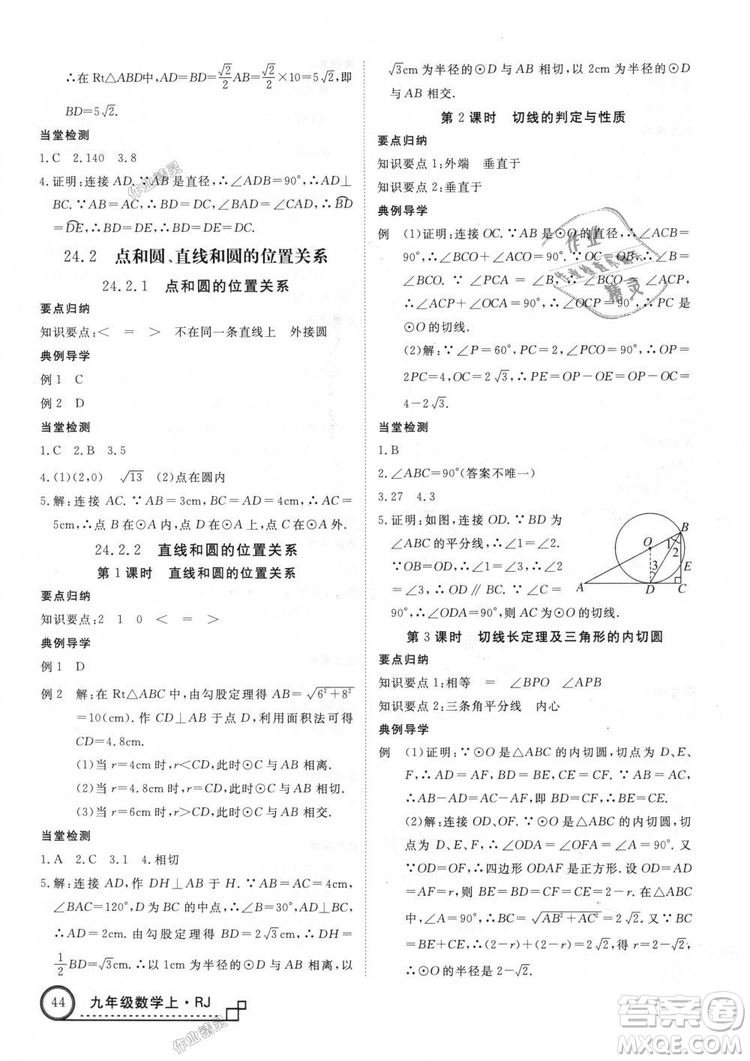 ∴在 Rt△ABD中,AD=BD=√2/2 AB=√2/2×10=5√2,即
BD=5√2.
当堂检测
1.C 2.140 3.8
4.证明:连接 AD.∵AB 是直径,∴∠ADB=90°,∴AD⊥
BC.∵AB=AC,∴BD=DC,∠BAD=∠CAD,∴BD⌒
=DE⌒,∴BD=DE,∴BD=DE=DC.
24.2 点和圆、直线和圆的位置关系
24.2.1 点和圆的位置关系
要点归纳
知识要点:< = > 不在同一条直线上 外接圆
典例导学
例 1 C
例 2 D
当堂检测
1.C 2.B 3.5
4.(1)(2,0) √13 (2)点在圆内
5.解:连接 AC.∵AB=3cm,BC=AD=4cm,∴AC=
5cm,∴点 B 在⊙A 内,点 D 在⊙A 上,点 C 在⊙A 外.
24.2.2 直线和圆的位置关系
第 1 课时 直线和圆的位置关系
要点归纳
知识要点:2 1 0 < = >
典例导学
例 1 D
例 2 解:在 Rt△ABC 中,由勾股定理得 AB=√(6²+8²)
=10(cm).作 CD⊥AB 于点 D,利用面积法可得
CD=4.8cm.
(1)当 r=4cm 时,r<CD,此时⊙C 与 AB 相离.
(2)当 r=4.8cm 时,r=CD,此时⊙C 与 AB 相切.
(3)当 r=6cm 时,r>CD,此时⊙C 与 AB 相交.
当堂检测
1.A 2.C 3.1 4.相切
5.解:连接 AD,作 DH⊥AB 于 H.∵AB=AC=4cm,
∠BAC=120°,D 为 BC 的中点,∴∠B=30°,AD⊥BC,
∴AD=2cm.由勾股定理得 BD=2√3cm,∴DH=
1/2 BD=√3cm,∴以 1cm 为半径的⊙D 与 AB 相离.以
44 九年级数学上·RJ
√3cm 为半径的⊙D 与 AB 相切.以 2cm 为半径的⊙D 与
AB 相交.
第 2 课时 切线的判定与性质
要点归纳
知识要点 1:外端 垂直于
知识要点 2:垂直于
典例导学
例 (1)证明:连接 OC.∵AB 是⊙O 的直径,∴∠ACB=
90°,∴∠BCO+∠ACO=90°.∵OB=OC,∴∠B=
∠BCO.∵∠PCA=∠B,∴∠BCO=∠PCA,
∴∠PCA+∠ACO=90°,即∠PCO=90°,∴PC 是
⊙O 的切线.
(2)解:∵∠P=60°,∠PCO=90°,PC=2,∴OP=
2PC=4,OC=2√3,∴PE=OP-OE=OP-OC=
4-2√3.
当堂检测
1.B
2.∠ABC=90°(答案不唯一)
3.27 4.3
5.证明:如图,连接 OD.∵BD 为
∠ABC 的平分线,∴∠1=∠2.
∵OB=OD,∴∠1=∠3,∴∠2
=∠3,∴OD∥BC.∵∠C=
90°,∴∠ODA=90°,则 AC 为⊙O 的切线.
O
B
1
2
3
A
D
C
第 3 课时 切线长定理及三角形的内切圆
要点归纳
知识要点 1:相等 = ∠BPO ∠APO
知识要点 2:三条角平分线 内心
典例导学
例 (1)证明:∵⊙O 是△ABC 的内切圆,切点为 D、E、
F,∴AD=AF,BD=BE,CE=CF.∵AB=AC,
∴AB-AD=AC-AF,即 BD=CF,∴BE=CE.
(2)解:连接 OD、OF.∵⊙O 是△ABC 的内切圆,切点为
D、E、F,∠A=90°,∴∠ODA=∠OFA=∠A=90°.又
∵OD=OF,∴四边形 ODAF 是正方形.设 OD=AD
=AF=r,则 BE=BD=CF=CE=2-r.在△ABC
中,∠A=90°,∴BC=√(AB²+AC²)=2√2.又∵BC
=BE+CE,∴(2-r)+(2-r)=2√2,得 r=2-√2,
∴⊙O 的半径是 2-√2.
作业精灵
答案圈
MXQE.COM